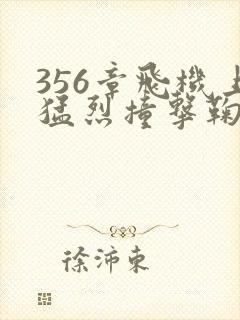 356章飛機上
猛烈撞擊鞠
徐沛東